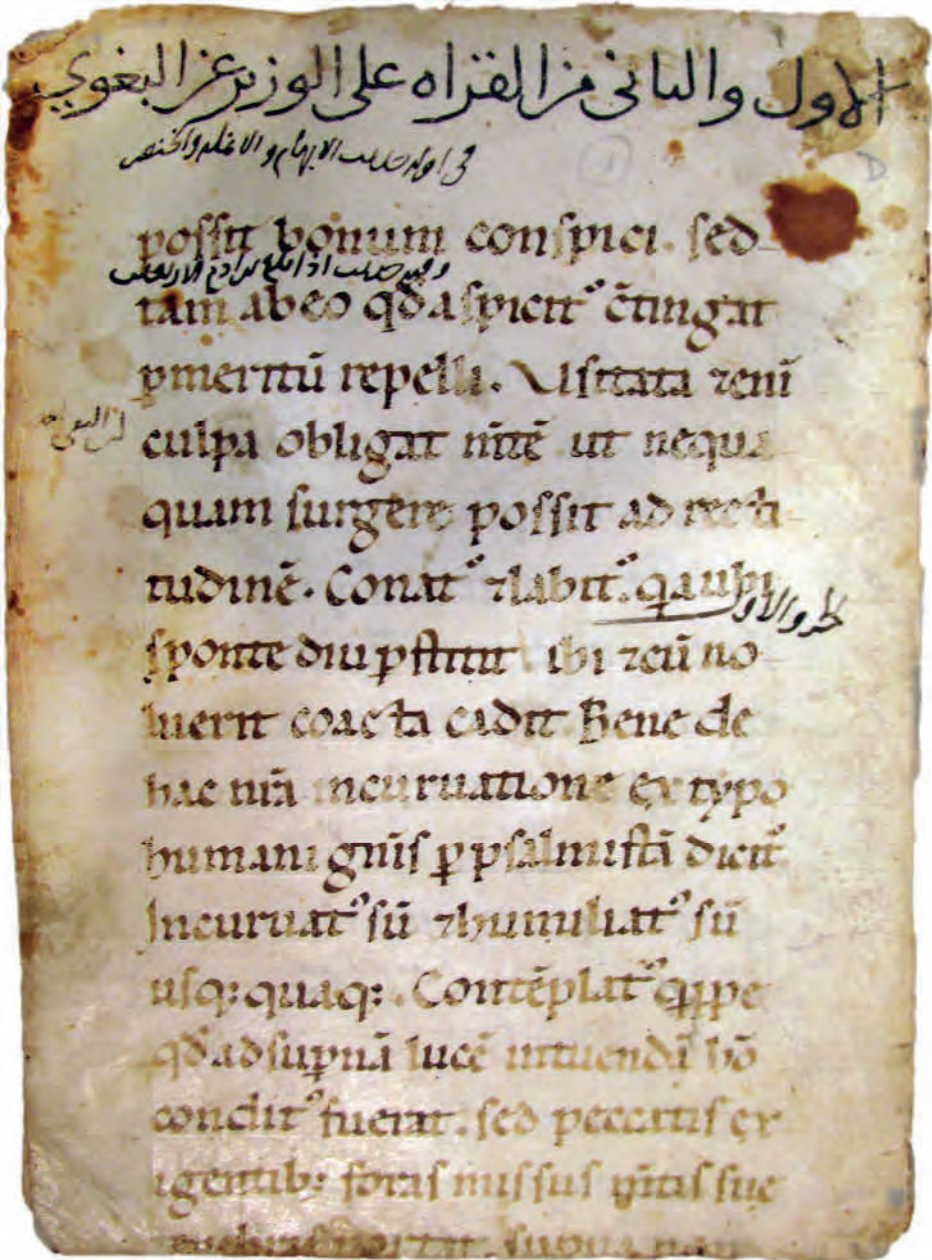 الاول والثاني من القراه على الوزير عن البغوي
في اوله حديث الابهام و
possit bonum conspici. sed
وفيه حديث اذا
tam ab eo qđ aspicit᾿ c̄tingat
ꝑmeritū repelli. Usitata ⁊eni
culpa obligat m̄tē ut nequa
quam surgere possit ad recti
tudinē. Conat᾿ ⁊labit᾿. q̇a ubi
sponte diu ꝑstitit ibi ⁊cū no
luerit coacta cadit. Bene de
hac nr̄a incuruatione ex typo
humani gn̄is ꝑ psalmistā dicit᾿
Incuruat᾿ sū ⁊humiliat᾿ sū
usq: quaq: . Contēplat᾿ q̇ppe
qđ ad suꝑnā lucē intuendā hō
condit᾿ fuerat. sed peccatis ex
igentib: foras missus m̄tis sue